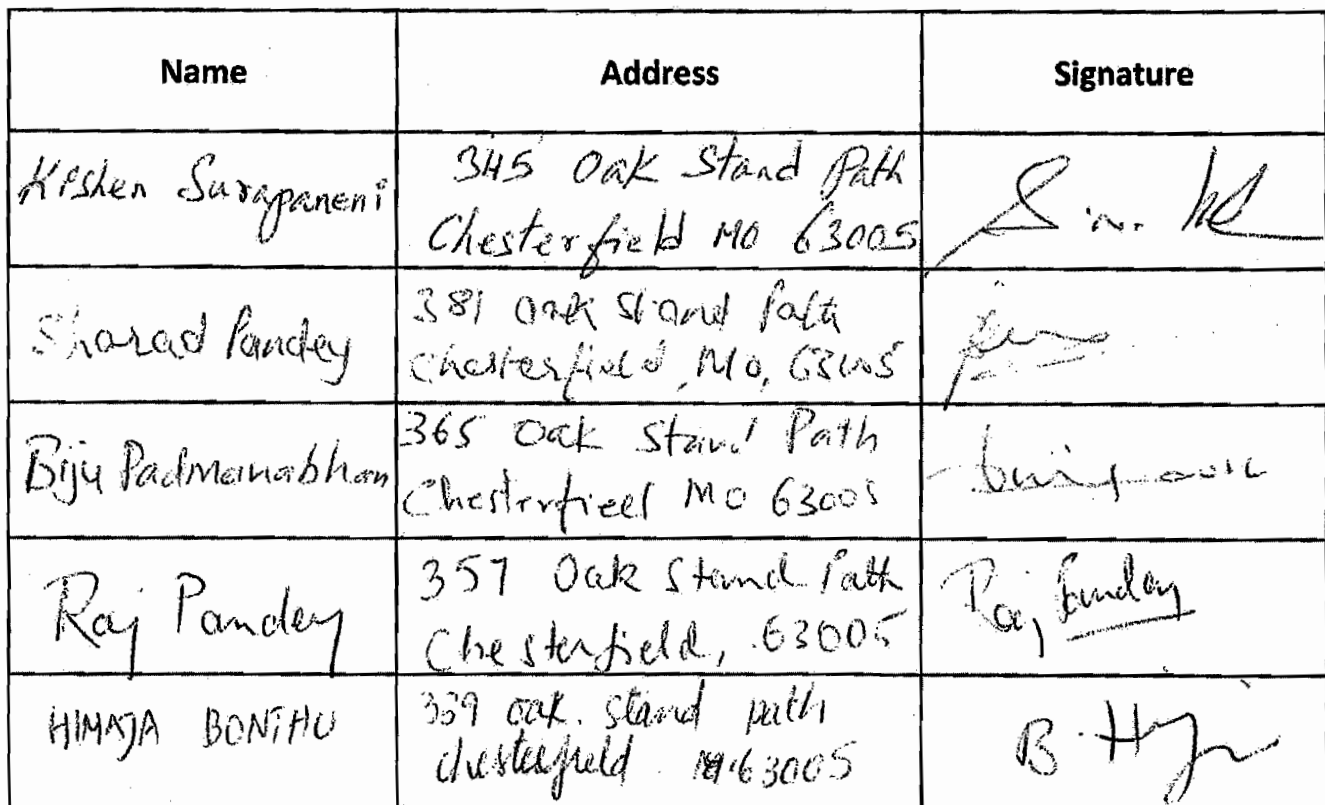 Name Address Signature
Kishen Surapaneni
345 Oak Stand Path
Chesterfield MO 63005
Sharad Pandey
381 Oak Stand Path
Chesterfield, Mo, 63005
Biju Padmanabhan
365 Oak Stand Path
Chesterfield MO 63005
Raj Pandey
357 Oak Stand Path
Chesterfield, 63005
Raj Pandey
HIMAJA
oak. stand path
chesterfield 63005
B.